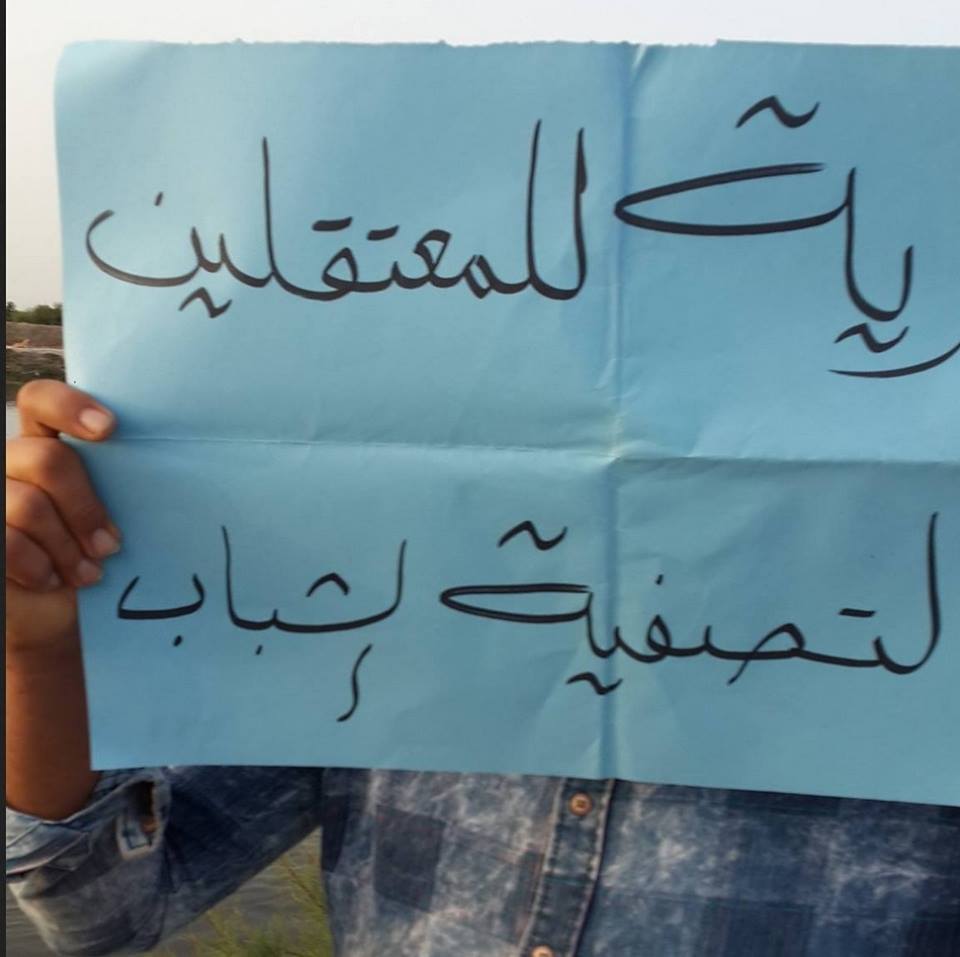 رية للمعتقلين
لتصفية لشباب